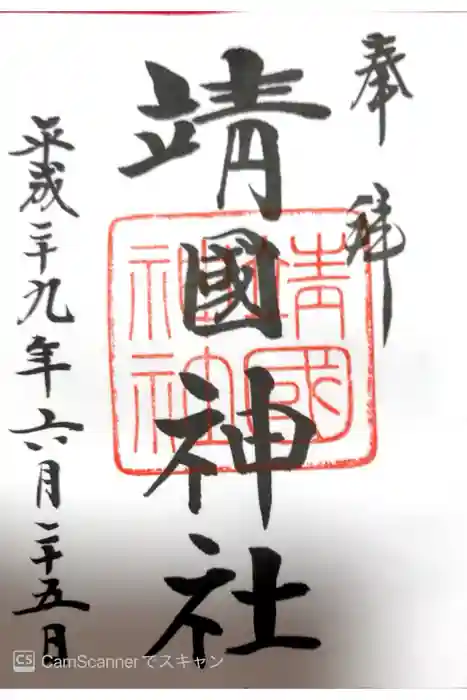 奉拝
靖國神社
靖國神社
平成二十九年六月二十五日
CS CamScannerでスキャン